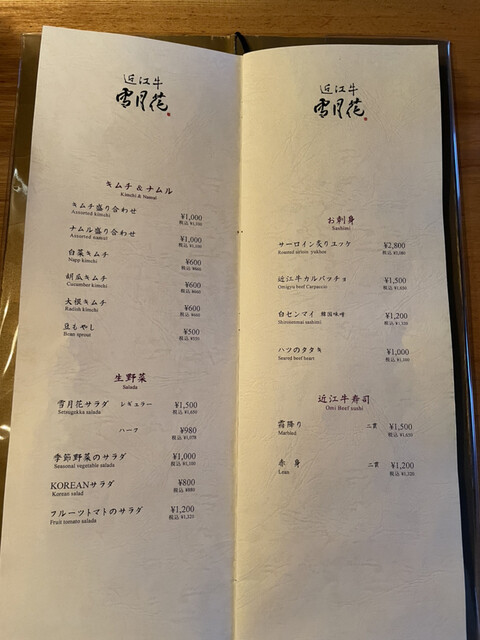 近江牛
雪月花
キムチ&ナムル
Kimchi & Namul
キムチ盛り合わせ ¥1,000
Assorted kimchi 税込 ¥1,100
ナムル盛り合わせ ¥1,000
Assorted namul 税込 ¥1,100
白菜キムチ ¥600
Napp kimchi 税込 ¥660
胡瓜キムチ ¥600
Cucumber kimchi 税込 ¥660
大根キムチ ¥600
Radish kimchi 税込 ¥660
豆もやし ¥500
Bean sprout 税込 ¥550
生野菜
Salada
雪月花サラダ レギュラー ¥1,500
Setsugekka salada 税込 ¥1,650
ハーフ ¥980
税込 ¥1,078
季節野菜のサラダ ¥1,000
Seasonal vegetable salada 税込 ¥1,100
KOREANサラダ ¥800
Korean salad 税込 ¥880
フルーツトマトのサラダ ¥1,200
Fruit tomato salada 税込 ¥1,320
近江牛
雪月花
お刺身
Sashimi
サーロイン炙りユッケ ¥2,800
Roasted sirloin yukhoe 税込 ¥3,080
近江牛カルパッチョ ¥1,500
Omigyu beef Carpaccio 税込 ¥1,650
白センマイ 韓国味噌 ¥1,200
Shirosenmai sashimi 税込 ¥1,320
ハツのタタキ ¥1,000
Seared beef heart 税込 ¥1,100
近江牛寿司
Omi Beef sushi
霜降り 二貫 ¥1,500
Marbled 税込 ¥1,650
赤身 二貫 ¥1,200
Lean 税込 ¥1,320